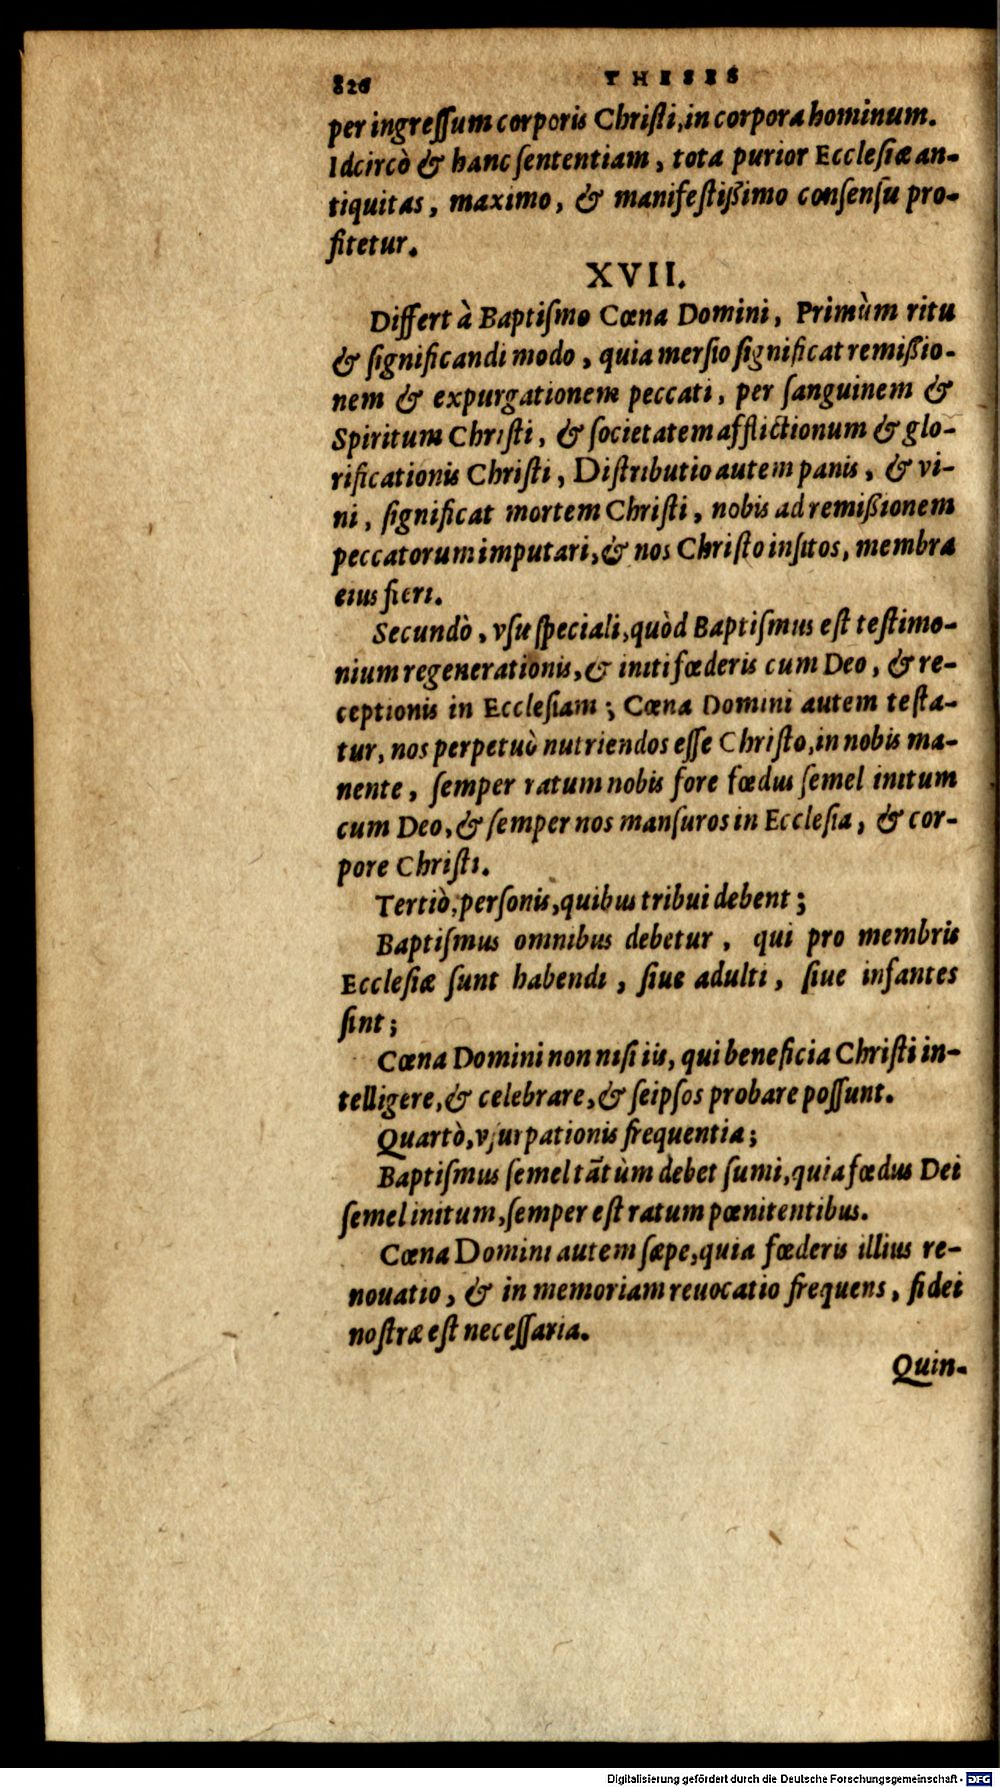 826 THESES
per ingreſſum corporis Chriſti, in corpora hominum.
Idcircò & hanc ſententiam, tota purior Eccleſiæ an-
tiquitas, maximo, & manifeſtißimo conſenſu pro-
fitetur.
XVII.
Differt à Baptiſmo Cœna Domini, Primùm ritu
& ſignificandi modo, quia merſio ſignificat remißio-
nem & expurgationem peccati, per ſanguinem &
Spiritum Chriſti, & ſocietatem afflictionum & glo-
rificationis Chriſti, Diſtributio autem panis, & vi-
ni, ſignificat mortem Chriſti, nobis ad remißionem
peccatorum imputari, & nos Chriſto inſitos, membra
eius fieri.
Secundò, vſu ſpeciali, quòd Baptiſmus eſt teſtimo-
nium regenerationis, & initi fœderis cum Deo, & re-
ceptionis in Eccleſiam; Cœna Domini autem teſta-
tur, nos perpetuò nutriendos eſſe Chriſto, in nobis ma-
nente, ſemper ratum nobis fore fœdus ſemel initum
cum Deo, & ſemper nos manſuros in Eccleſia, & cor-
pore Chriſti.
Tertiò, perſonis, quibus tribui debent;
Baptiſmus omnibus debetur, qui pro membris
Eccleſiæ ſunt habendi, ſiue adulti, ſiue infantes
ſint;
Cœna Domini non niſi iis, qui beneficia Chriſti in-
telligere, & celebrare, & ſeipſos probare poſſunt.
Quartò, vſurpationis frequentia;
Baptiſmus ſemel tãtùm debet ſumi, quia fœdus Dei
ſemel initum, ſemper eſt ratum pœnitentibus.
Cœna Domini autem ſæpe, quia fœderis illius re-
nouatio, & in memoriam reuocatio frequens, fidei
noſtræ eſt neceſſaria.
Quin-
Digitalisierung gefördert durch die Deutsche Forschungsgemeinschaft - DFG